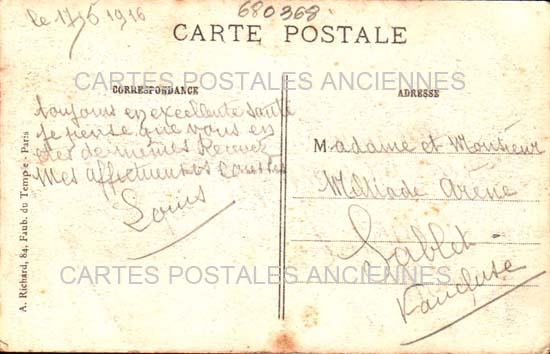 le 17/5 1916
680368
CARTE POSTALE
CARTES POSTALES ANCIENNES
CORRESPONDANCE
ADRESSE
toujours en excellente santé
je pense que vous en
etes de memes Recevez
Mes affectueuses Caresses
Louis
Madame et Monsieur
Milliade Arène
Sablet
Vaucluse
CARTES POSTALES ANCIENNES
A. Richard, 84, Faub. du Temple - Paris